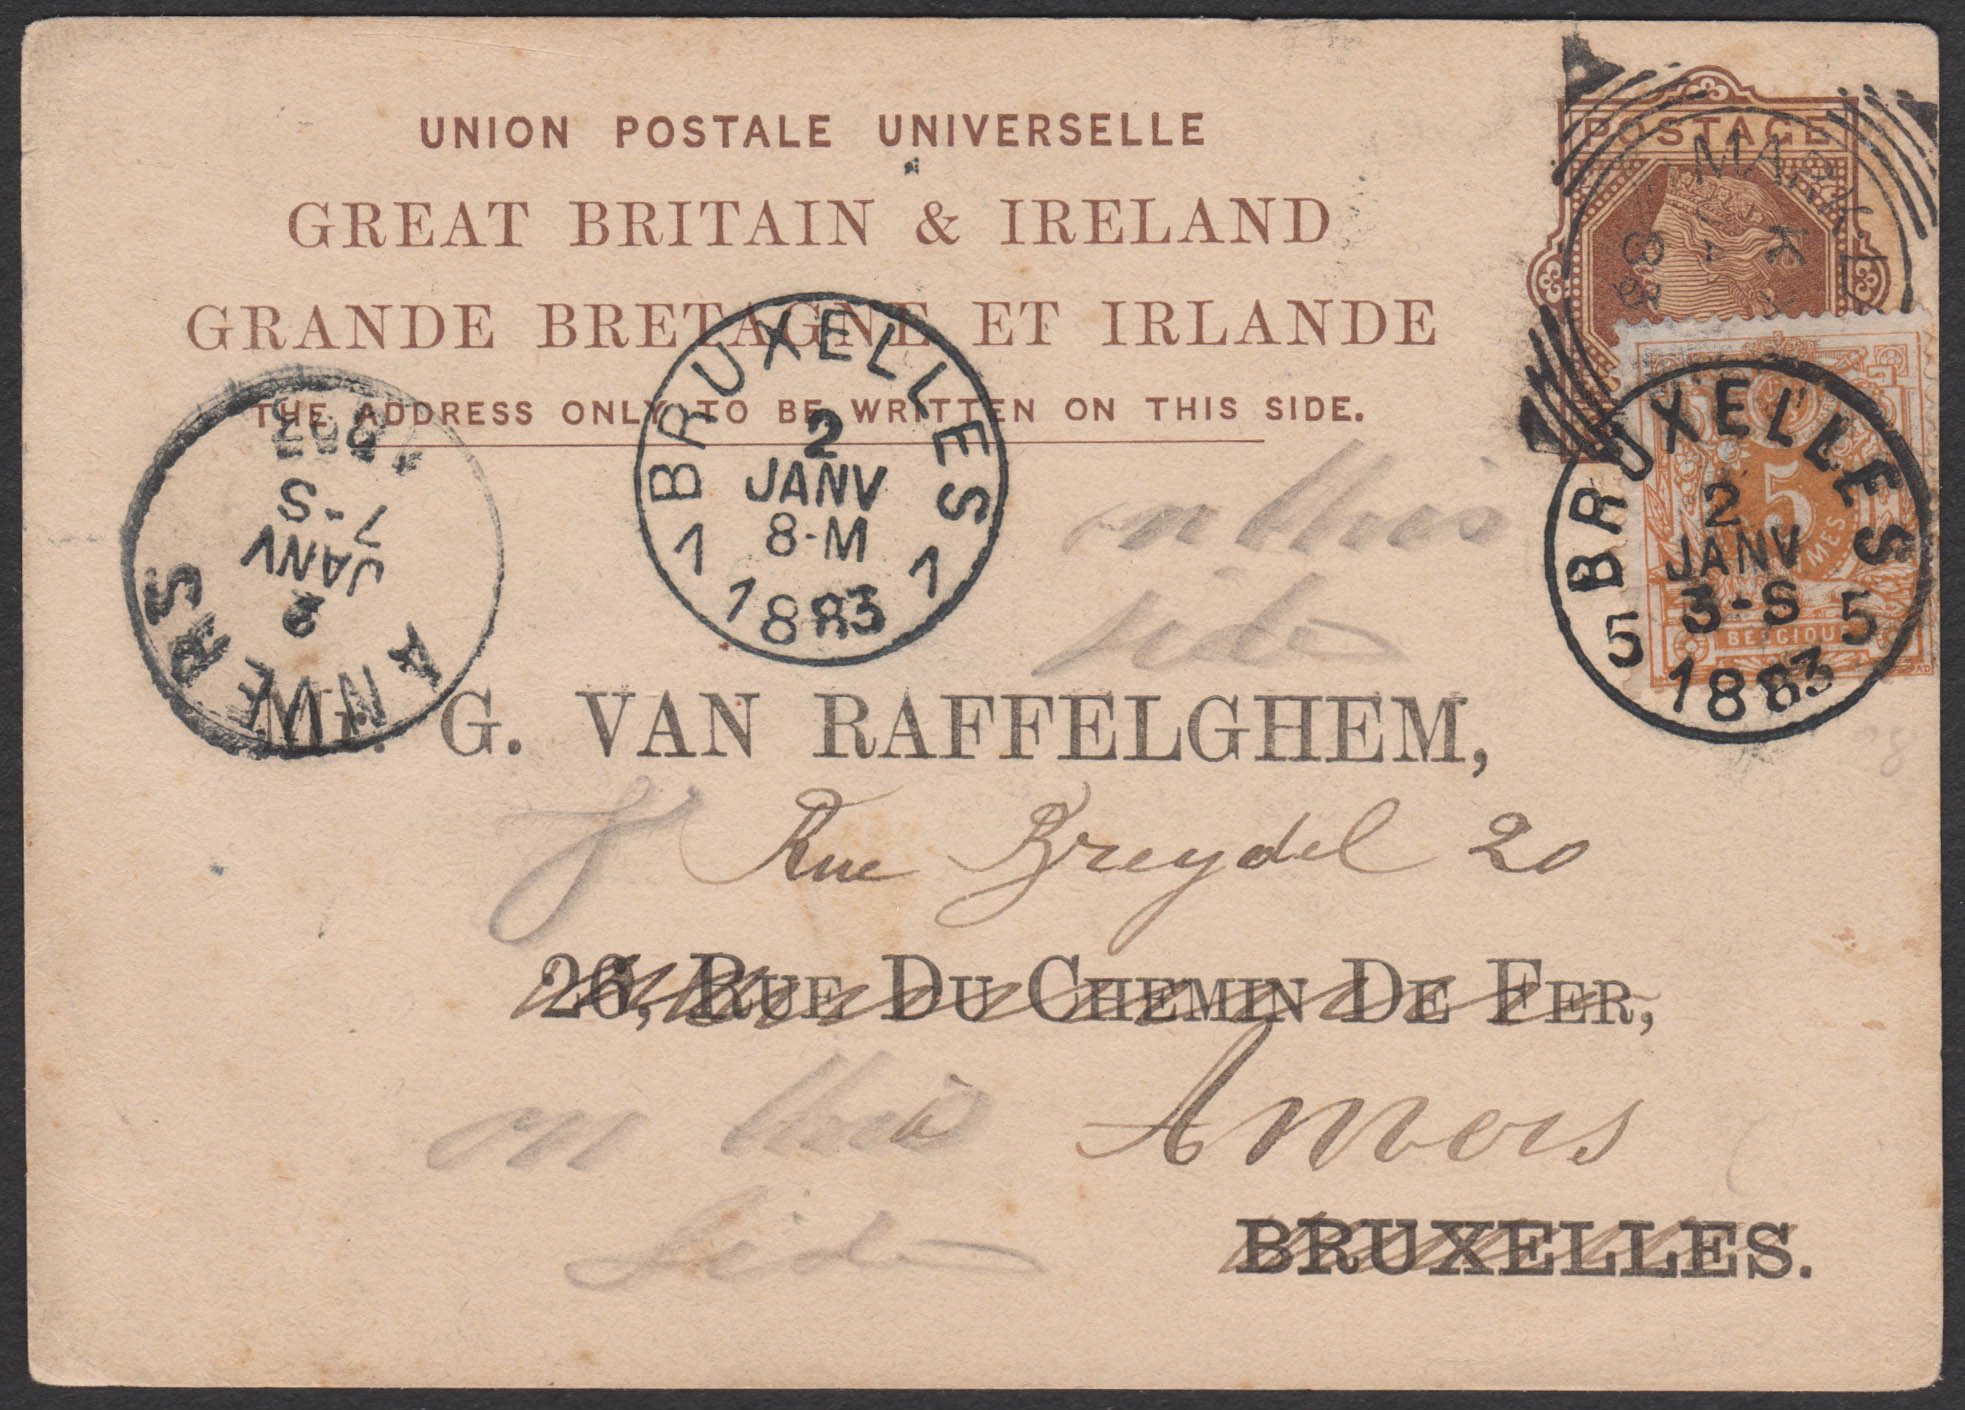 UNION POSTALE UNIVERSELLE
GREAT BRITAIN & IRELAND
GRANDE BRETAGNE ET IRLANDE
THE ADDRESS ONLY TO BE WRITTEN ON THIS SIDE.
POSTAGE
MARK
K
83
5
CENTIMES
BELGIQUE
BRUXELLES
2
JANV
3-S
5 5
1883
BRUXELLES
2
JANV
8-M
1 1
1883
ANVERS
2
JANV
7-S
1883
on this
side
Mr. G. VAN RAFFELGHEM,
Rue Breydel 20
26, RUE DU CHEMIN DE FER,
à Anvers
on this
side
BRUXELLES.